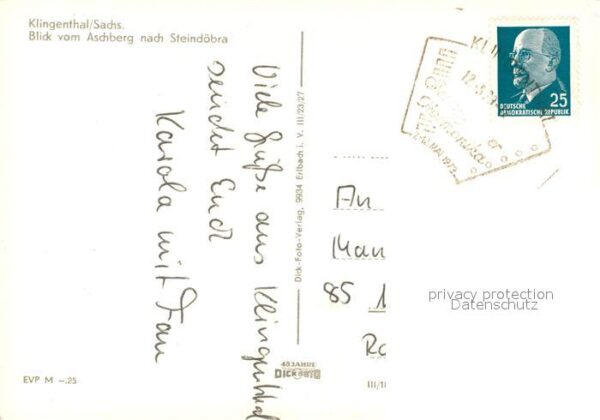 Klingenthal/Sachs.
Blick vom Aschberg nach Steindöbra
Viele Grüße aus Klingenthal
sendet Euch
Karola mit Fam
Dick-Foto-Verlag, 9934 Erlbach i. V. III/23/27
25
DEUTSCHE
DEMOKRATISCHE REPUBLIK
KLIN
12.5.
MAI 1973
An
Man
85
privacy protection
Datenschutz
40 JAHRE
DICK
III/18
EVP M –.25